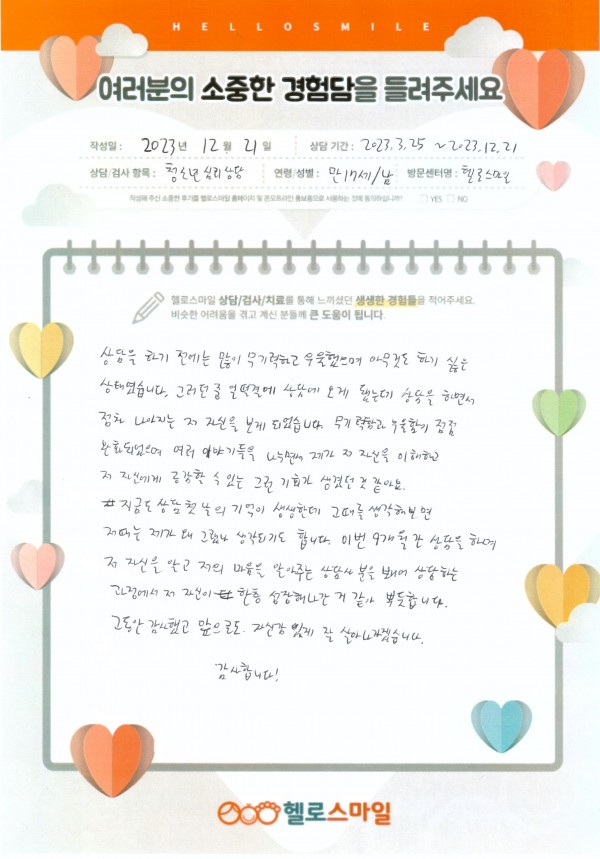 HELLOSMILE
여러분의 소중한 경험담을 들려주세요
작성일 : 2023년 12월 21일 상담 기간 : 2023.3.25 ~2023.12.21
상담/검사 항목 : 청소년 심리상담 연령/성별 : 만 17세/남 방문센터명 : 헬로스마일
작성해 주신 소중한 후기를 헬로스마일 홈페이지 및 온오프라인 홍보용으로 사용하는 것에 동의하십니까? YES NO
헬로스마일 상담/검사/치료를 통해 느끼셨던 생생한 경험들을 적어주세요.
비슷한 어려움을 겪고 계신 분들께 큰 도움이 됩니다.
상담을 하기 전에는 많이 무기력하고 우울했으며 아무것도 하기 싫은
상태였습니다. 그러던 중 얼떨결에 상담에 오게 됐는데 상담을 하면서
점차 나아지는 저 자신을 보게 되었습니다. 무기력함과 우울함이 점점
완화되었으며 여러 이야기들을 나누면서 제가 저 자신을 이해하고
저 자신에게 공감할 수 있는 그런 기회가 생겼던 것 같아요.
지금도 상담 첫 날의 기억이 생생한데 그때를 생각해보면
저때는 제가 왜 그랬나 생각되기도 합니다. 이번 9개월간 상담을 하며
저 자신을 알고 저의 마음을 알아주는 상담사 분을 보며 상담하는
과정에서 저 자신이 한층 성장해나간 거 같아 뿌듯합니다.
그동안 감사했고 앞으로도 자신감 있게 잘 살아나가겠습니다.
감사합니다!
헬로스마일